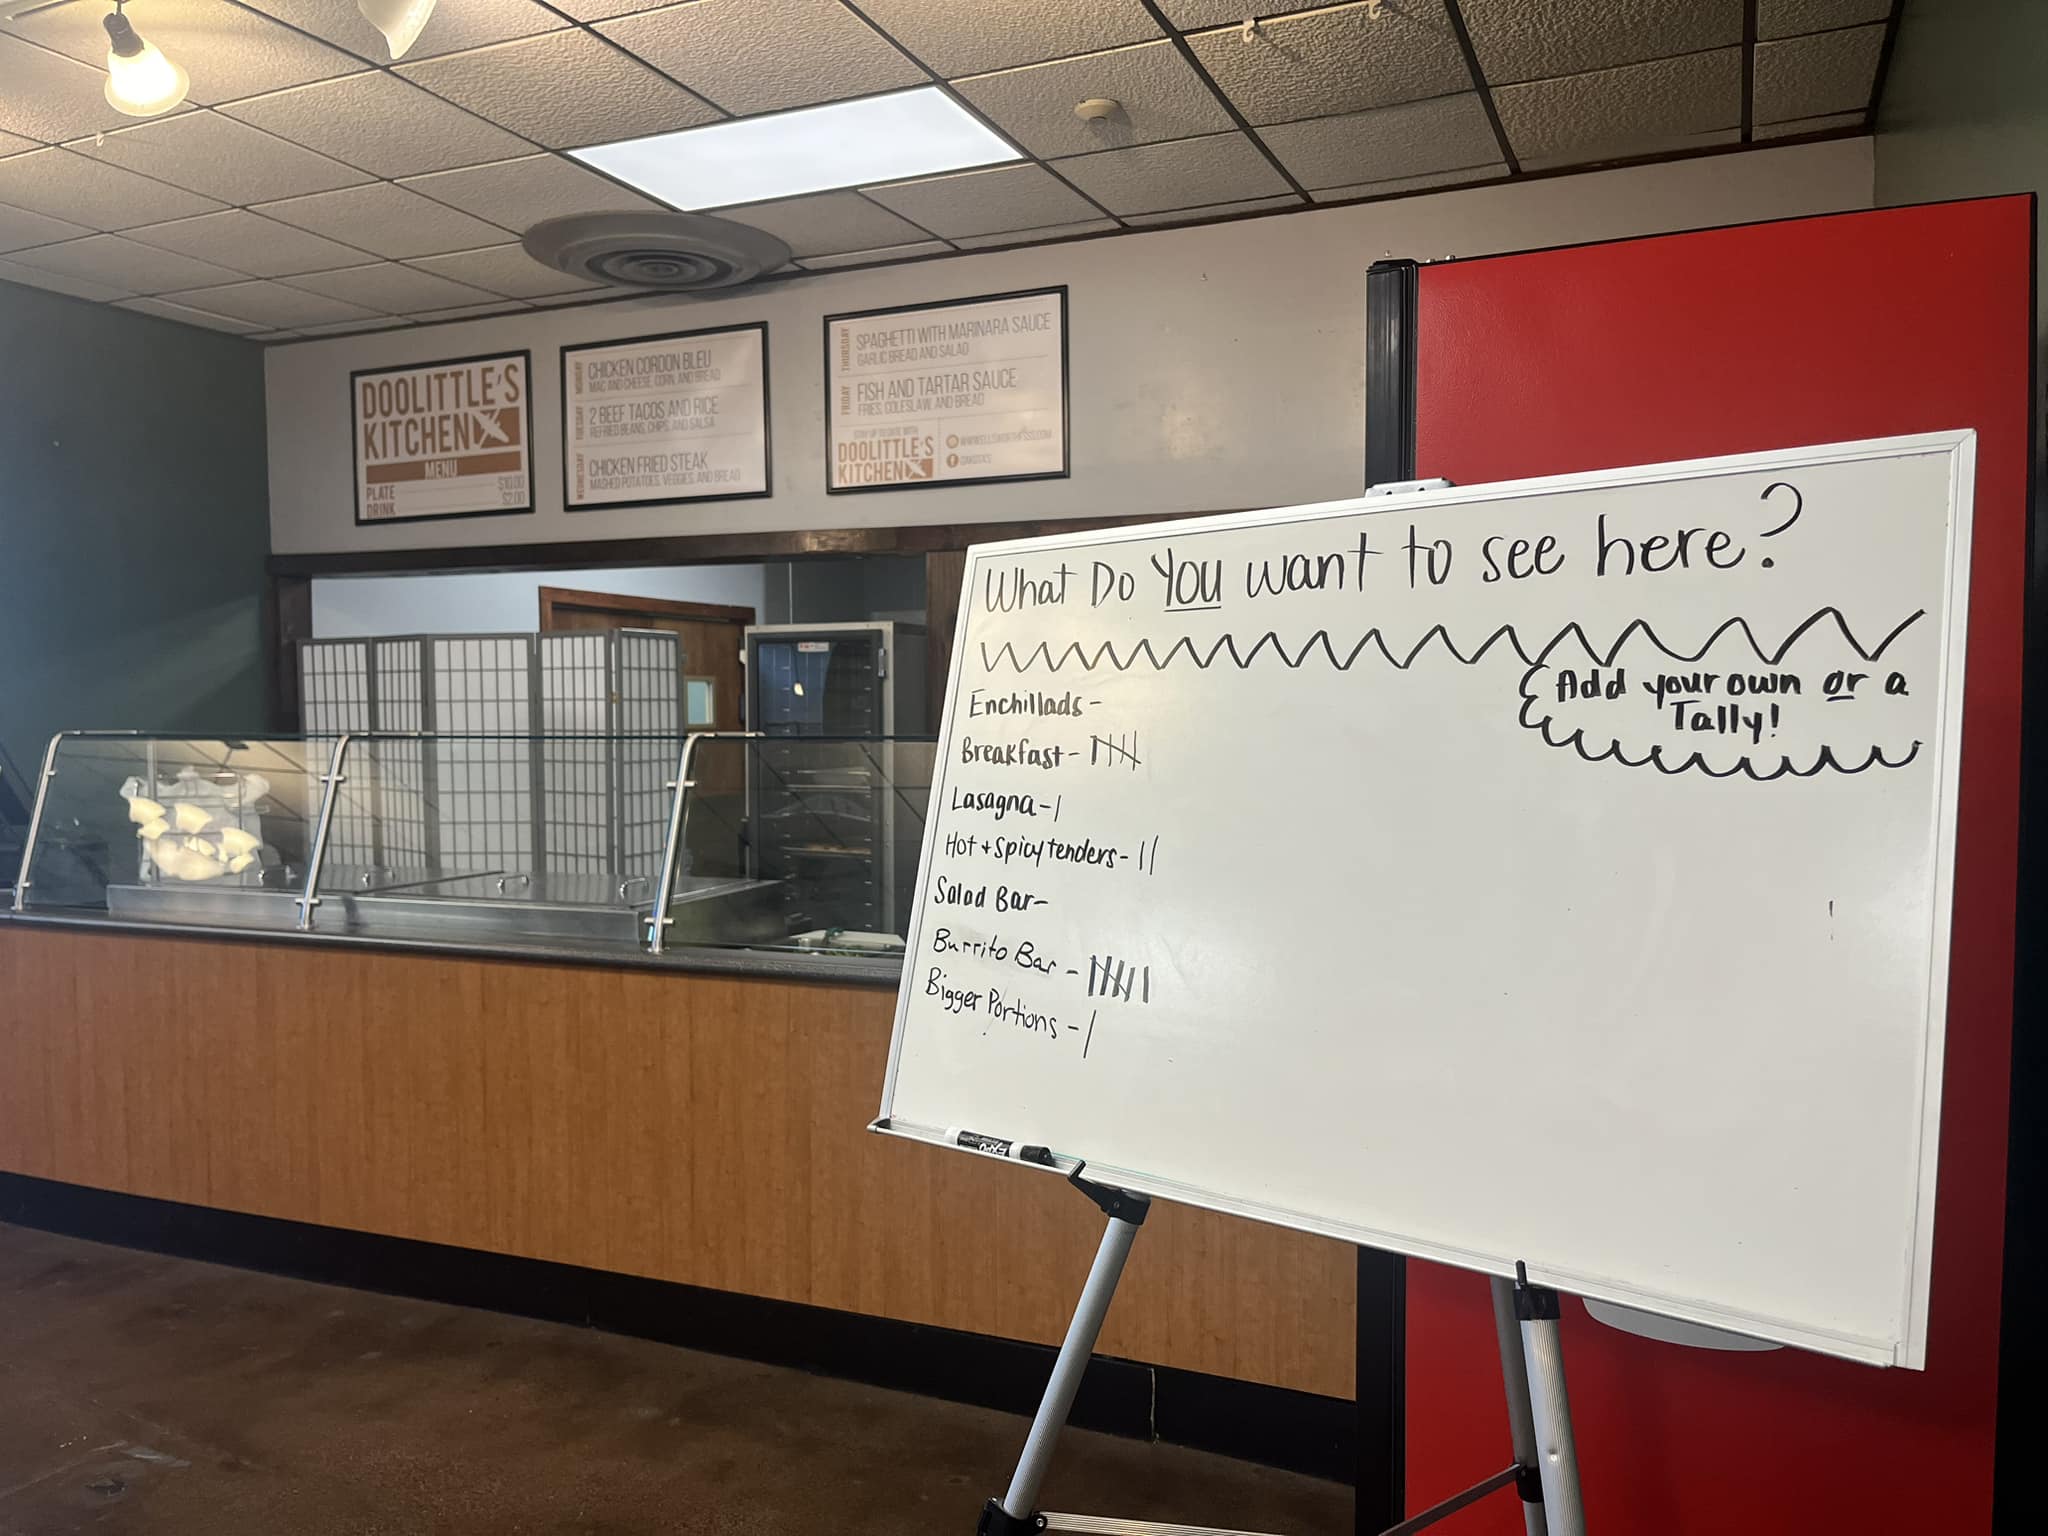 DOOLITTLE'S
KITCHEN
MENU
PLATE $10.00
DRINK $2.00
MONDAY
CHICKEN CORDON BLEU
MAC AND CHEESE, CORN, AND BREAD
TUESDAY
2 BEEF TACOS AND RICE
REFRIED BEANS, CHIPS, AND SALSA
WEDNESDAY
CHICKEN FRIED STEAK
MASHED POTATOES, VEGGIES, AND BREAD
THURSDAY
SPAGHETTI WITH MARINARA SAUCE
GARLIC BREAD AND SALAD
FRIDAY
FISH AND TARTAR SAUCE
FRIES, COLESLAW, AND BREAD
STAY UP TO DATE WITH
DOOLITTLE'S
KITCHEN
WWW.ELLSWORTHFSS.COM
What Do YOU want to see here?
Add your own or a
Tally!
Enchillads -
Breakfast -
Lasagna - |
Hot + Spicy tenders - ||
Salad Bar -
Burrito Bar -
Bigger Portions - |
EXPO